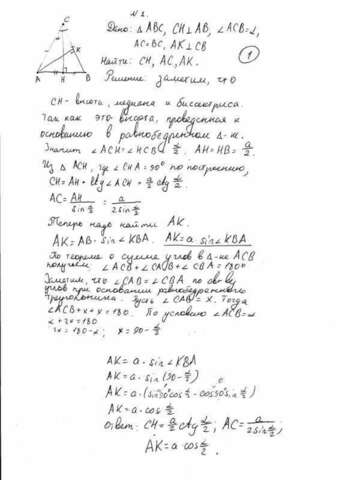 №2.
C
K
A H B
Дано: △ABC, CH⊥AB, ∠ACB=α,
AC=BC, AK⊥CB
Найти: CH, AC, AK.
1
Решение: заметим, что
CH - высота, медиана и биссектриса.
Так как это высота, проведенная к
основанию в равнобедренном Δ-ке.
Значит ∠ACH=∠HCB=α/2. AH=HB=a/2.
Из △ACH, где ∠CHA=90° по построению,
CH=AH·ctg∠ACH=a/2 ctg α/2.
AC=AH/sin α/2=a/2sin α/2
Теперь надо найти AK.
AK=AB·sin∠KBA. AK=a·sin∠KBA
По теореме о сумме углов в Δ-ке ACB
получаем ∠ACB+∠CAB+∠CBA=180°
Заметим, что ∠CAB=∠CBA по св-ву
углов при основании равнобедренного
треугольника. Пусть ∠CAB=x. Тогда
∠ACB+x+x=180. По условию ∠ACB=α
α+2x=180
2x=180-α; x=90-α/2
AK=a·sin∠KBA
AK=a·sin(90-α/2)
AK=a·(sin90°cos α/2-cos90°sin α/2)
AK=a·cos α/2
Ответ: CH=a/2 ctg α/2; AC=a/2sin α/2;
AK=a·cos α/2.